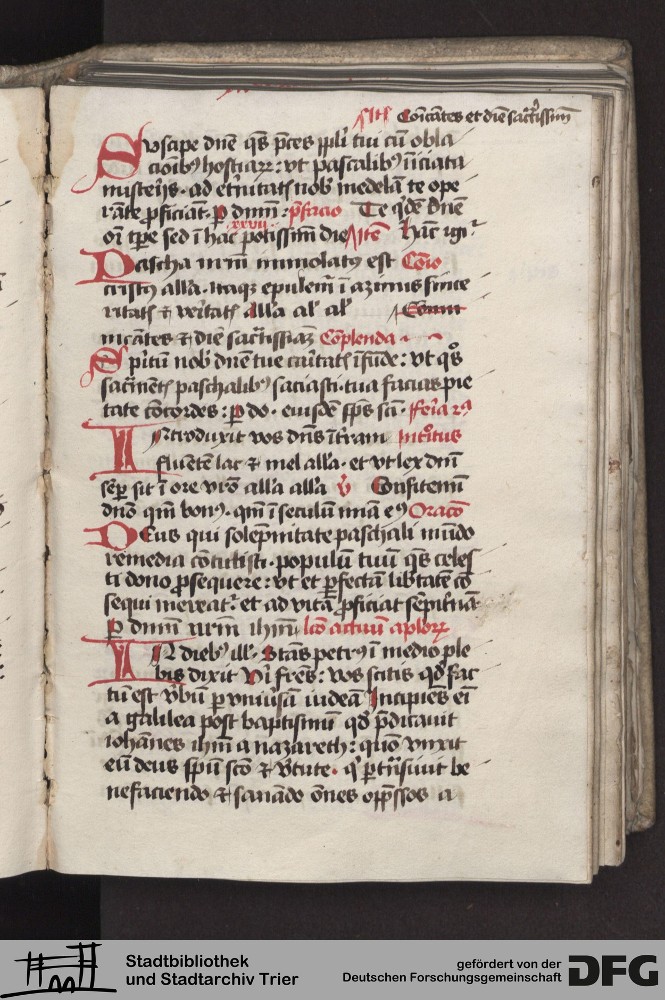 Ite Coicātes et diē sacrissim
Suscipe dne qs pces ppli tui cū obla
cioibꝰ hostiarꝝ: vt pascalibꝰ īiciata
misterijs· ad et̄nitatꝭ nobꝭ medelā te ope
rāte ꝓficiāt· ꝑ dnm̄: p̄facio Te qͥdē dn̄e
xxvij
oī tp̄e sed ī hac potissim̄ die Itē Hāc igiͬ
Pascha nrm̄ immolatꝰ est Cōio
cristꝰ alla· itaqꝫ epulem̄ ī azimis since
ritatꝭ ⁊ veritatꝭ alla al' al' Comu
nicātes ⁊ diē sacrissimā Cōplenda
Spiritū nobꝭ dne tue caritatꝭ īfūde: vt qͦs
sacrmētꝭ paschalibꝰ saciasti· tua facias pie
tate cōcordes: ꝑ do· eiusdē spūs scī· feria 2ꝰ
Introduxit vos dns ī t̄ram Introitus
fluētē lac ⁊ mel alla· et vt lex dnī
semꝑ sit ī ore vr̄o alla alla v̄ Confitemī
dno qm̄ bonꝰ· qm̄ ī seculū mīa eꝰ Oracō
Deus qui solēpnitate paschali mūdo
remedia cōtulisti· populū tuū qs celes
ti dono ꝓsequere: vt et ꝑfectā lib̄tatē cō
sequi mereatͬ· et ad vitā ꝓficiat sempit̄nā
ꝑ dnm̄ nrm̄ ihm̄ lcō actuū aplorꝝ
In diebꝰ ill' Stās petrꝰ ī medio ple
bis dixit Viri frēs: vos scitis qd̄ fac
tū est v̄bū ꝑ vniūsā iudeā Incipiēs eī
a galilea post baptismū qd̄ p̄dicauit
iohānes ihm̄ a nazareth: quō vnxit
eū deus spū scō ⁊ v̄tute· qͥ ꝑtrāsiuit be
nefaciendo ⁊ sanādo ōnes opp̄ssos a
Stadtbibliothek
und Stadtarchiv Trier
gefördert von der
Deutschen Forschungsgemeinschaft
DFG